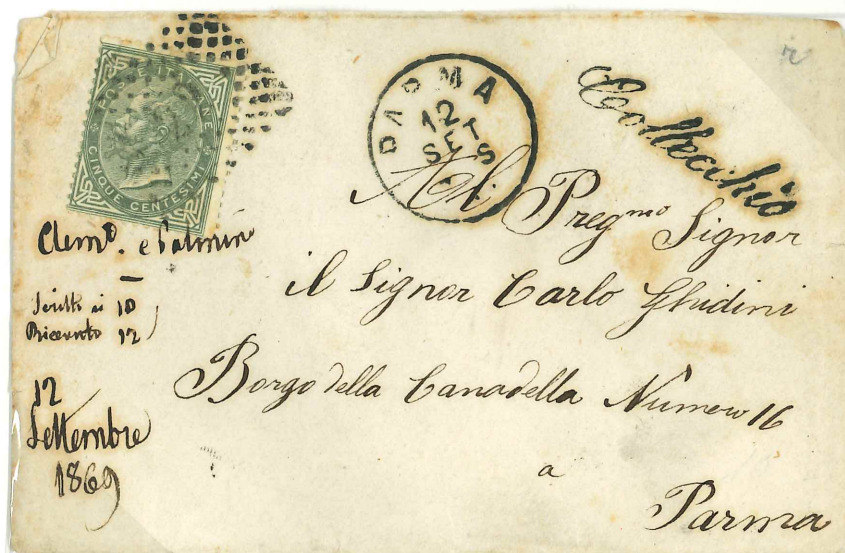 POSTE ITALIANE
CINQUE CENTESIMI
PARMA
12
SET
S
Collecchio
Al Preg.mo Signor
il Signor Carlo Ghidini
Borgo della Canadella Numero 16
a
Parma
Clem.o e Palmin
Scritto ai 10
Ricevuto 12
12
Settembre
1869